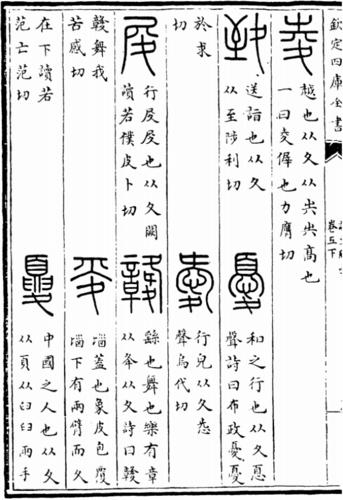 欽定四庫全書
卷五下
夌
越也从夊从圥圥高也
一曰夌徲也力膺切
致
送詣也从夊
从至陟利切
憂
和之行也从夊𢝊
聲詩曰布政憂憂
於求
切
愛
行皃从夊㤅
聲烏代切
𡕨
行𡕨𡕨也从夊闕
讀若僕皮卜切
竷
繇也舞也樂有章
从夅从夊詩曰竷
竷舞我
苦感切
㚇
𡿺蓋也象皮包覆
𡿺下有兩臂而夊
在下讀若
范亡范切
夏
中國之人也从夊
从頁从𦥑𦥑兩手